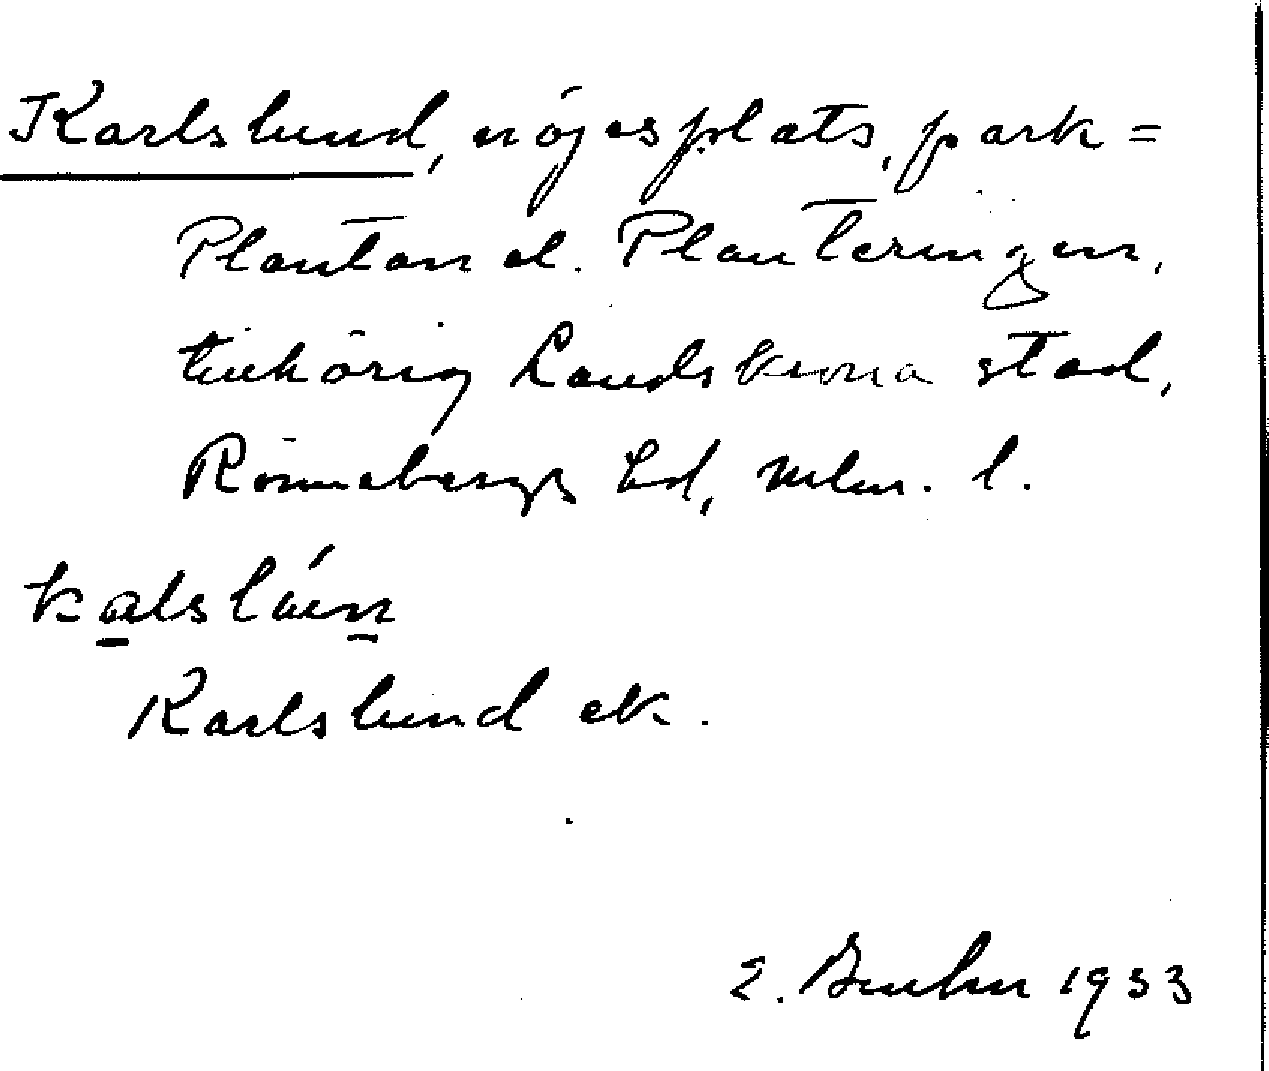 Karlslund, nöjesplats, park =
Plantan el. Planteringen,
tillhörig Landskrona stad,
Rönnebergs hd, Mlm. l.
kalslúen
Karlslund ek.
1933